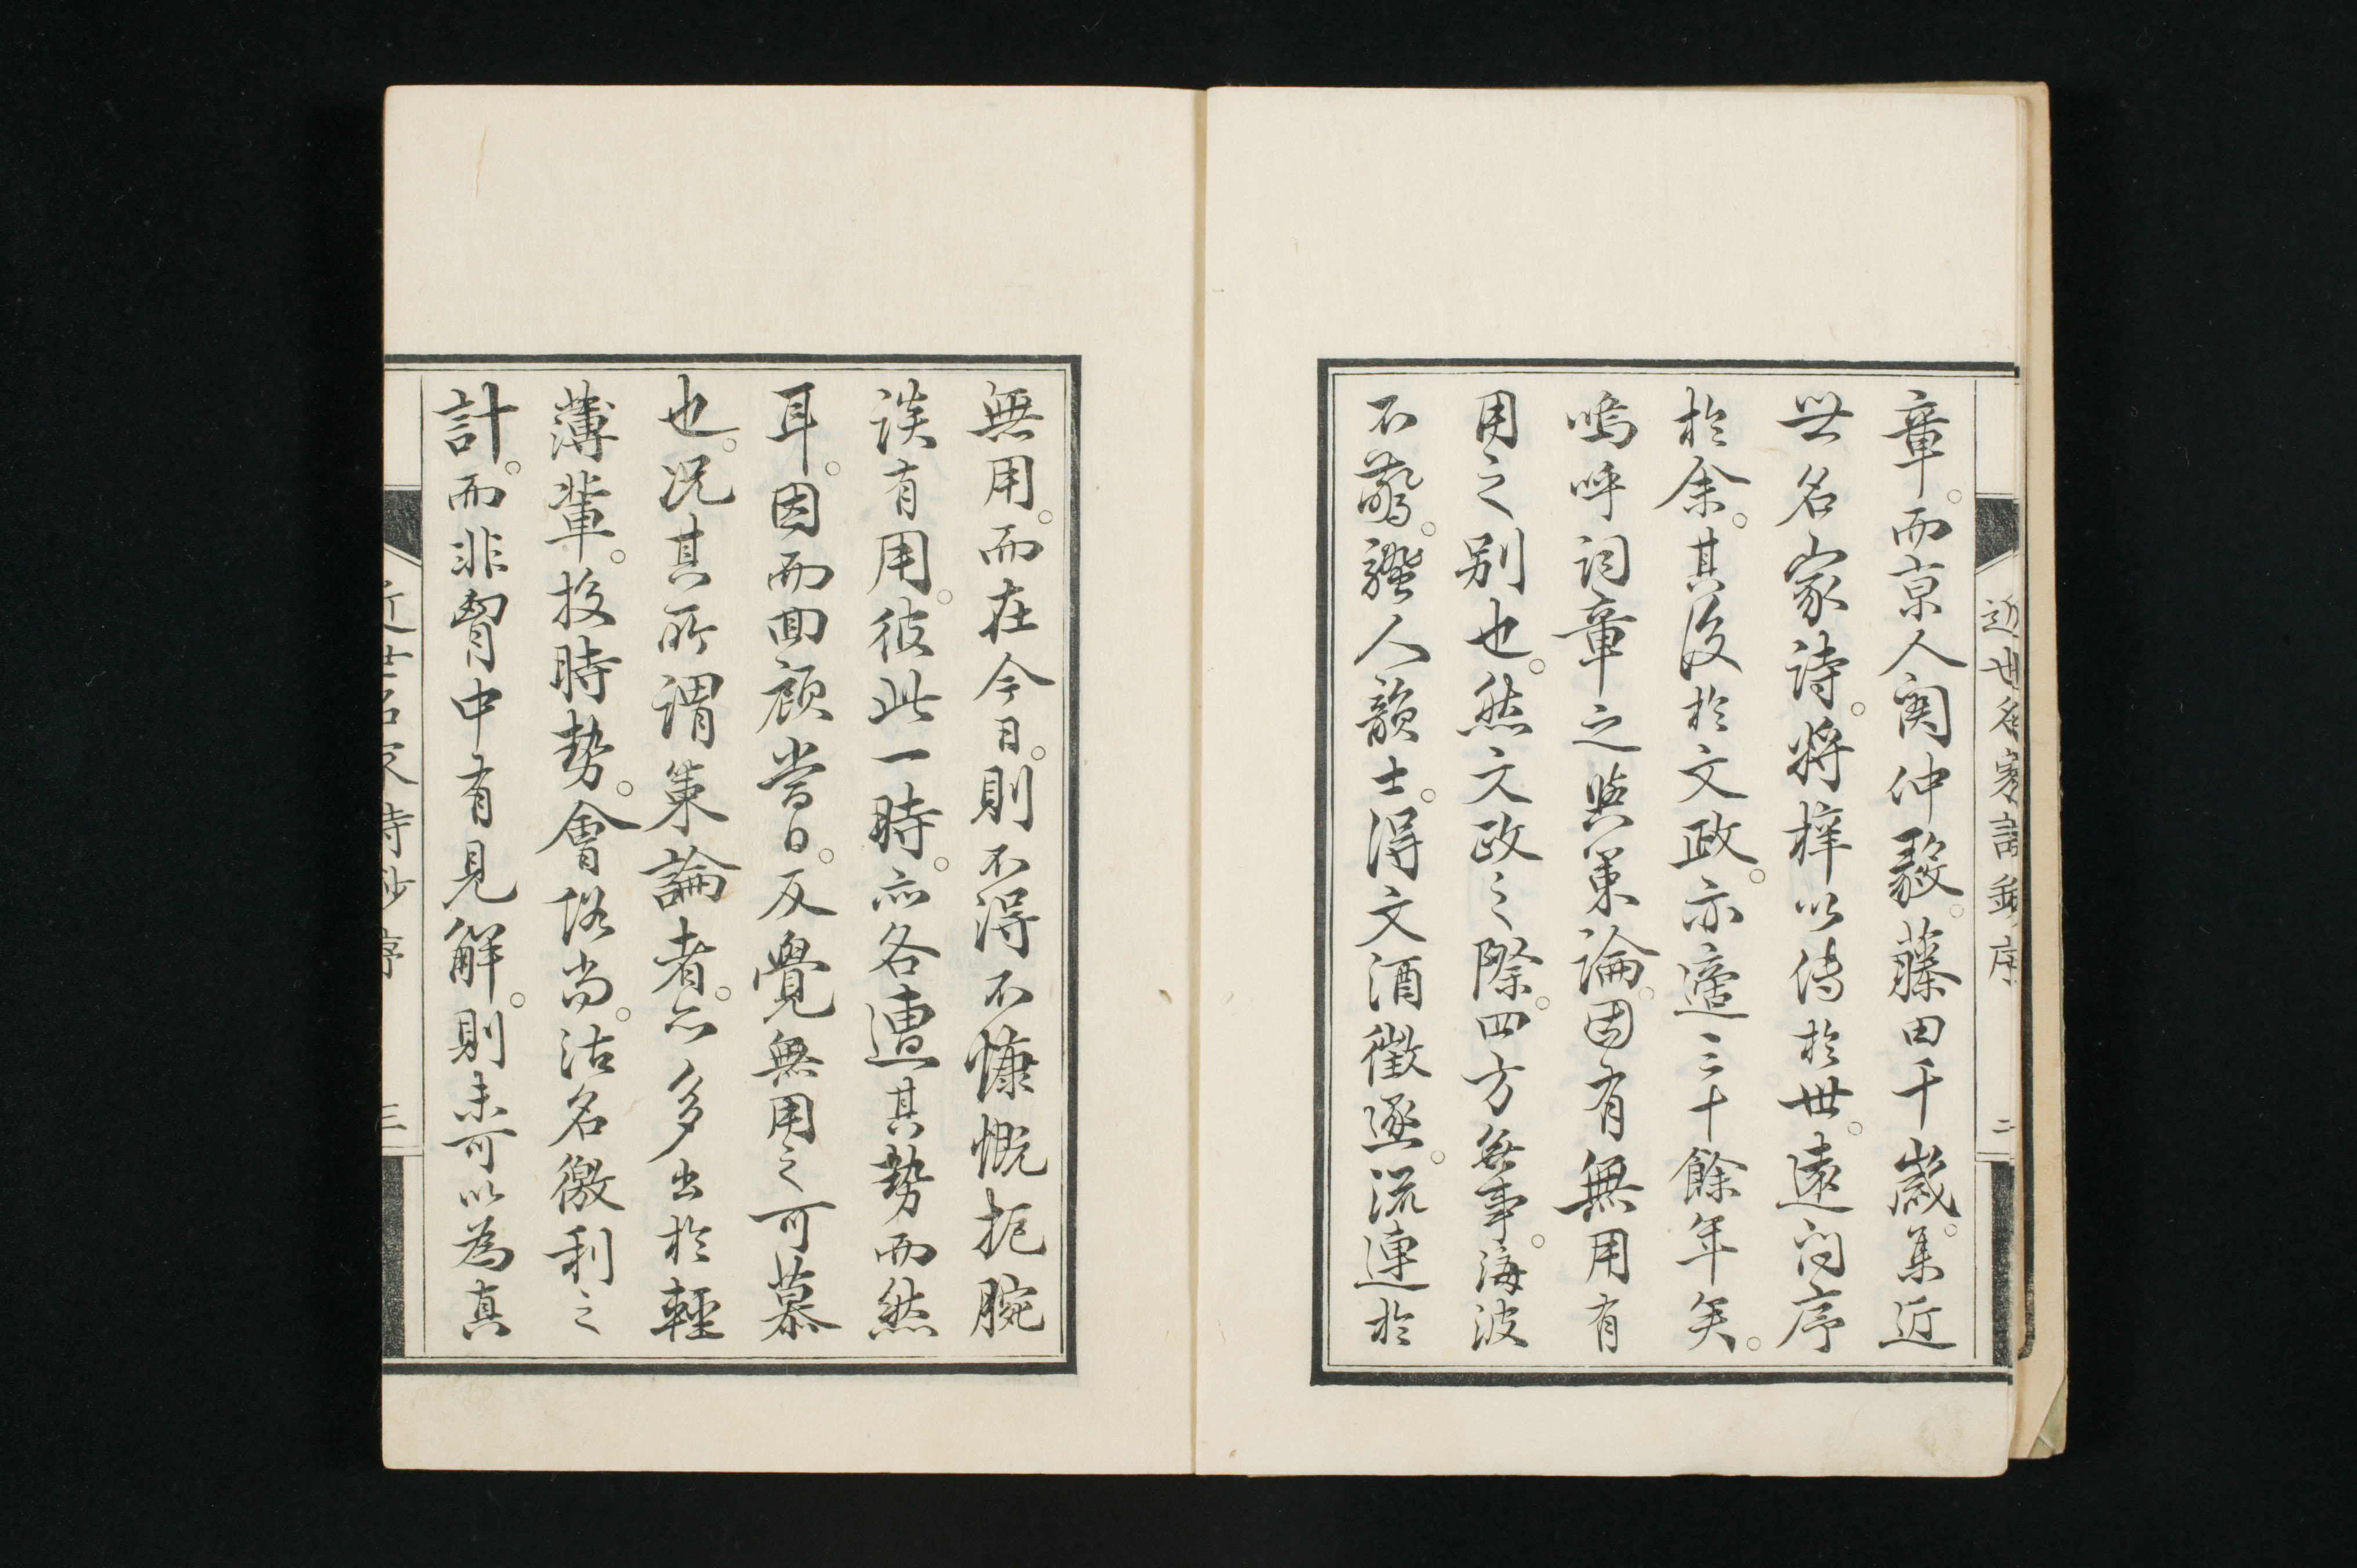 近世名家詩鈔序
二
章。而京人関仲毅。藤田千歳。集近
世名家詩。将梓以傳於世。遠问序
於余。其後於文政。亦適三十餘年矣。
嗚呼詞章之與策論。固有無用有
用之別也。然文政之際。四方無事。海波
不驚。騷人韻士。得文酒徵逐。流連於
無用。而在今日。則不得不慷慨扼腕
談有用。彼此一時。亦各遭其勢而然
耳。因而回顧當日。反覺無用之可慕
也。況其所謂策論者。亦多出於輕
薄輩。投時勢。會俗尚。沽名徼利之
計。而非胷中有見解。則未可以為真
近世名家詩鈔序
三